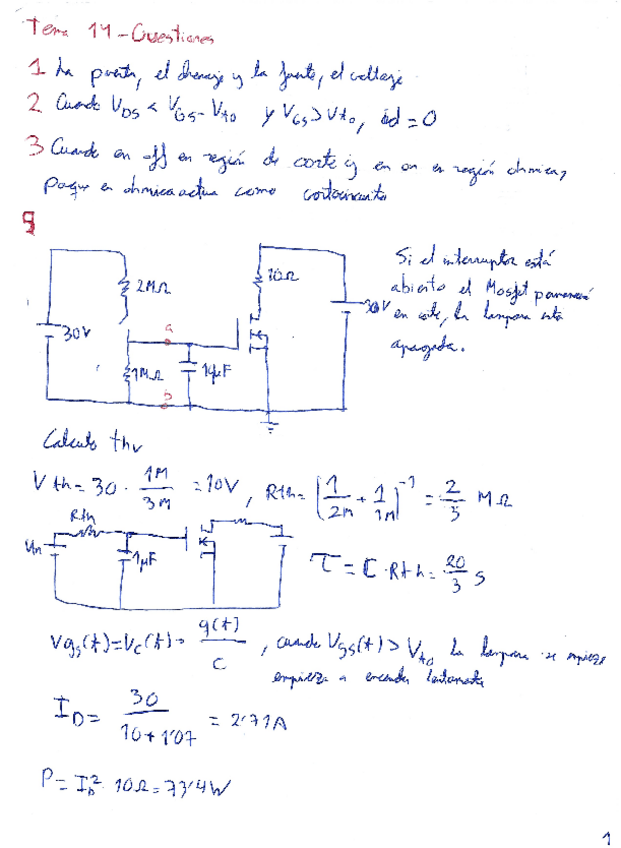 Tema 14 - Cuestiones
1 La puerta, el drenaje y la fuente, el voltaje
2 Cuando VDS < VGS - Vto y VGS > Vto, id = 0
3 Cuando en off en región de corte y en on en región ohmica,
porque en ohmica actua como cortocircuito
9
Si el interruptor está
abierto el Mosfet permanecerá
en corte, la lampara esta
apagada.
2MΩ
10Ω
30V
30V
a
1MΩ
b
Calculo thv
Vth = 30 · 1M / 3M = 10V, Rth = (1/2M + 1/1M)^-1 = 2/3 MΩ
Rth
1μF
τ = C · Rth = 20/3 s
Vgs(t) = Vc(t) = q(t)/C, cuando Vgs(t) > Vto la lampara se empieza
empieza a encender lentamente
ID = 30 / 10 + 1'07 = 2'71A
P = ID² · 10Ω = 73'4W
1